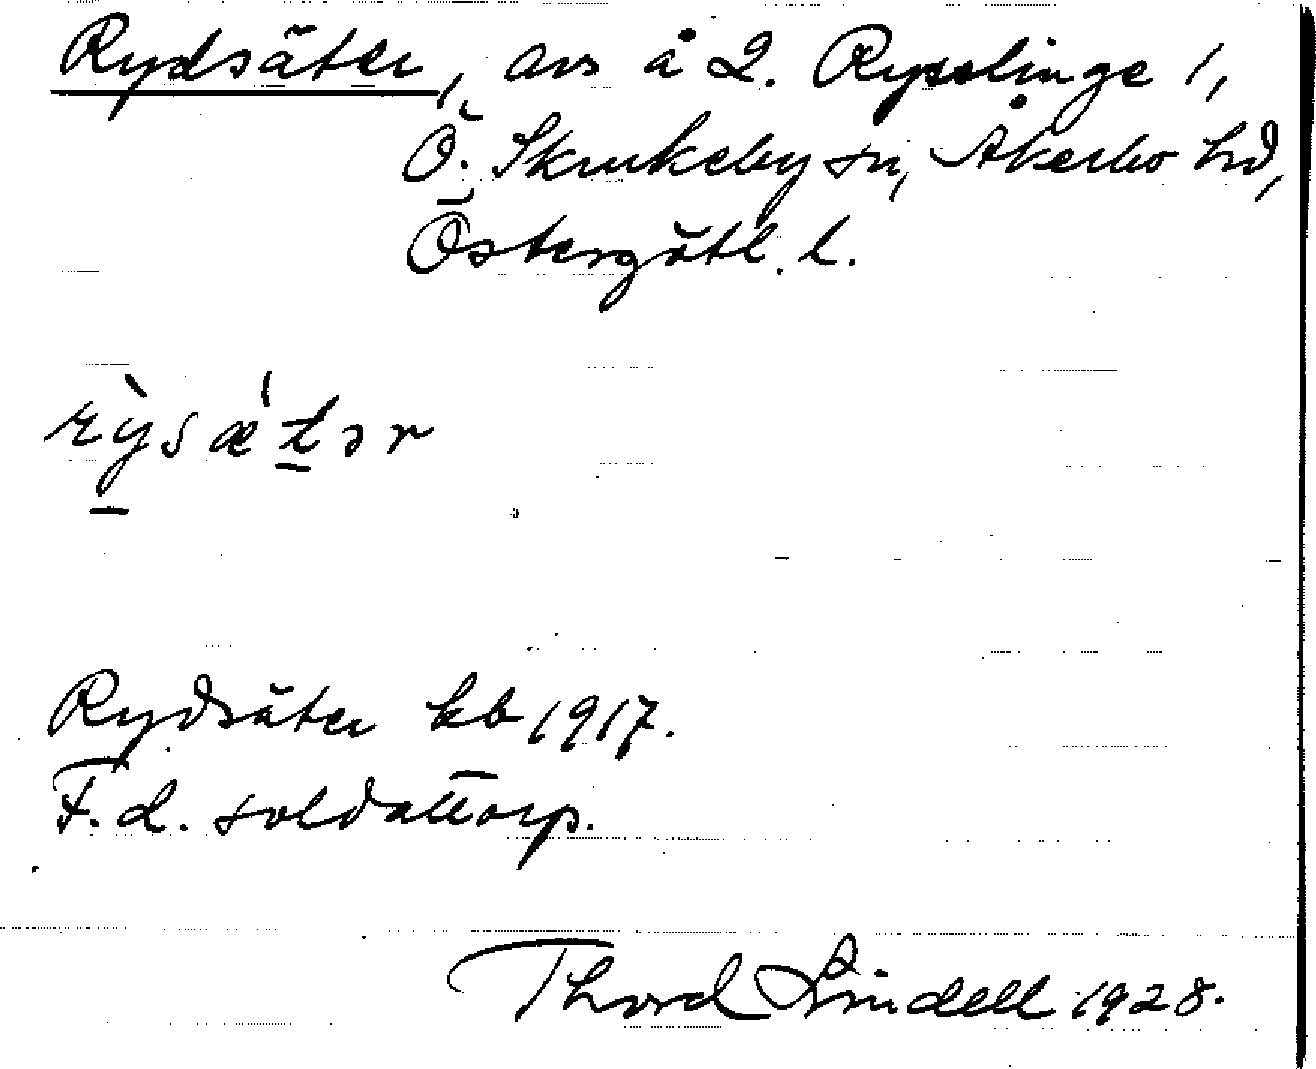 Rydsäter, avs å 2. Rysslinge 1,
Ö. Skrukeby sn, Åkerbo hd,
Östergötl. l.
rỳsæ'tər
Rydsäter kb 1917.
F.d. soldattorp.
Thord Lindell 1928.